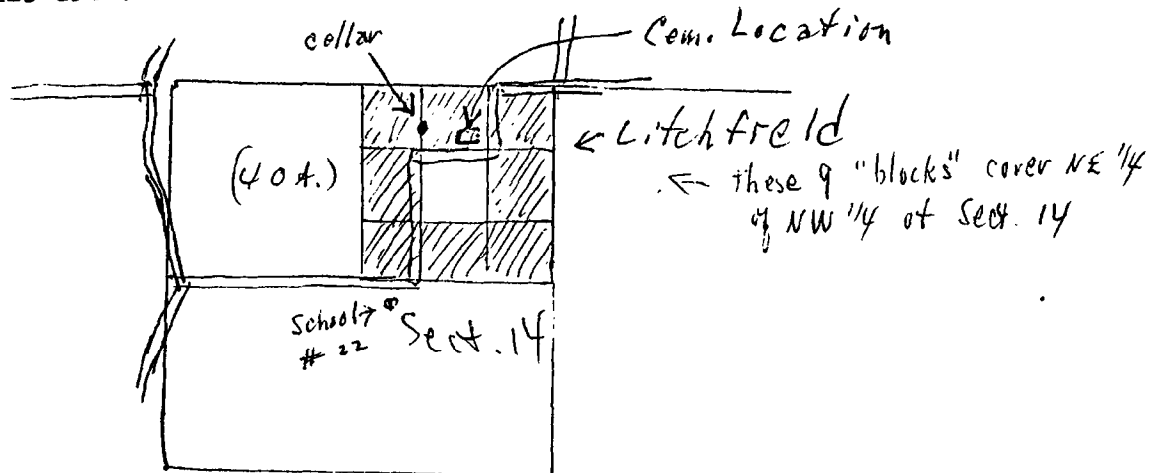 cellar
Cem. Location
← Litchfield
← these 9 "blocks" cover NE 1/4
of NW 1/4 of Sect. 14
(40 A.)
School→
# 22
Sect. 14